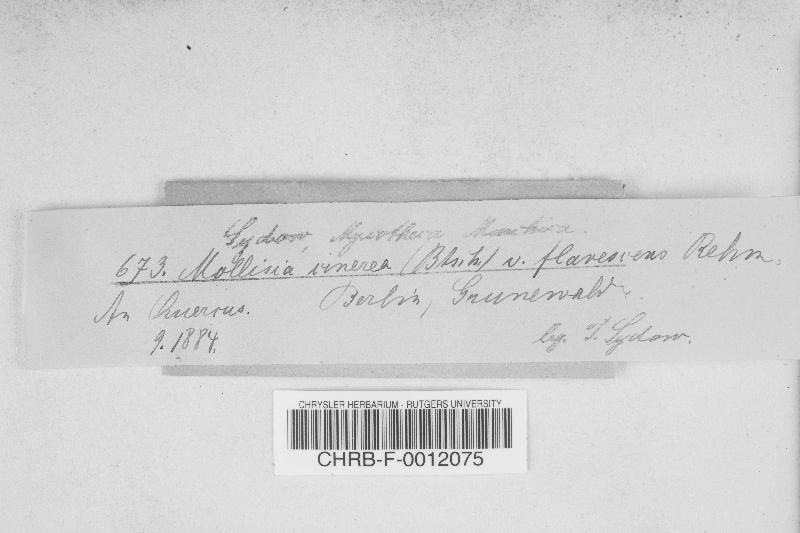 Sydow, Mycotheca Marchica.
673. Mollisia cinerea (Btsch.) v. flavescens Rehm.
An Quercus. Berlin, Grunewald.
9. 1884. leg. P. Sydow.
CHRYSLER HERBARIUM - RUTGERS UNIVERSITY
CHRB-F-0012075